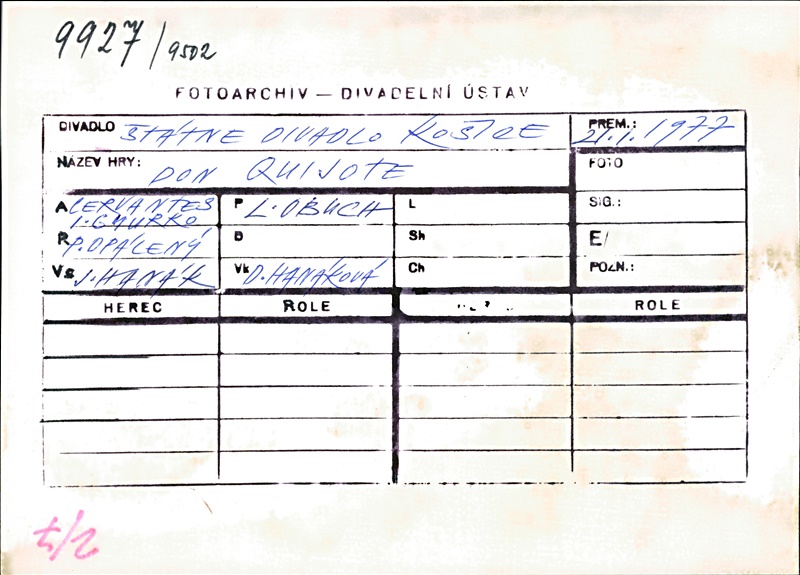 9927/9502
FOTOARCHIV — DIVADELNÍ ÚSTAV
DIVADLO ŠTÁTNE DIVADLO KOŠICE PREM.: 21.1.1977
NÁZEV HRY: DON QUIJOTE FOTO
A CERVANTES P L. OBUCH L SIG.:
I. GYURKO
R P. OPÁLENÝ B Sh E/
Vs J. HANÁK Vk D. HANÁKOVÁ Ch POZN.:
HEREC ROLE ROLE